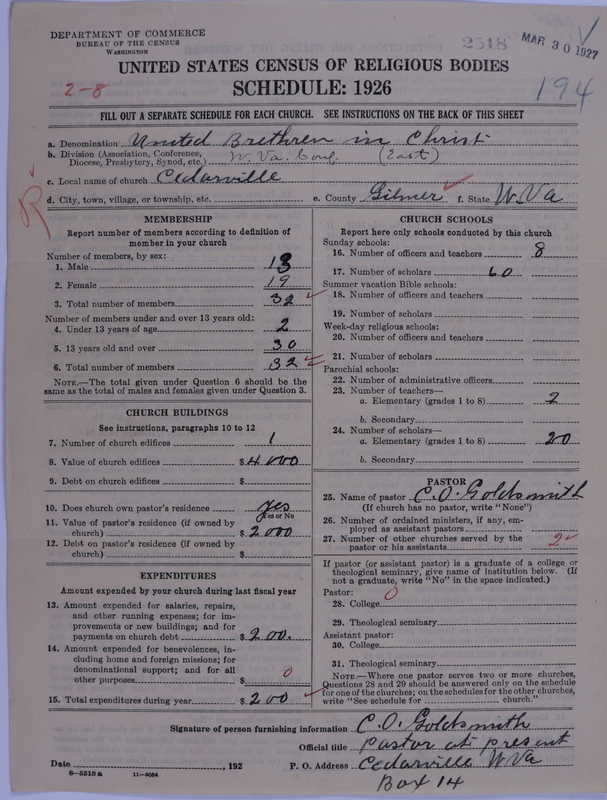 DEPARTMENT OF COMMERCE
BUREAU OF THE CENSUS
WASHINGTON
2518 MAR 30 1927
UNITED STATES CENSUS OF RELIGIOUS BODIES
2-8 SCHEDULE: 1926 194
FILL OUT A SEPARATE SCHEDULE FOR EACH CHURCH. SEE INSTRUCTIONS ON THE BACK OF THIS SHEET
a. Denomination United Brethren in Christ
b. Division (Association, Conference, Diocese, Presbytery, Synod, etc.) W. Va. Conf. (East)
c. Local name of church Cedarville
d. City, town, village, or township, etc. e. County Gilmer f. State W. Va
R
MEMBERSHIP
Report number of members according to definition of
member in your church
Number of members, by sex:
1. Male 13
2. Female 19
3. Total number of members 32
Number of members under and over 13 years old:
4. Under 13 years of age 2
5. 13 years old and over 30
6. Total number of members 32
NOTE.—The total given under Question 6 should be the
same as the total of males and females given under Question 3.
CHURCH BUILDINGS
See instructions, paragraphs 10 to 12
7. Number of church edifices 1
8. Value of church edifices $ 4000
9. Debt on church edifices $
10. Does church own pastor's residence yes
Yes or No
11. Value of pastor's residence (if owned by
church) $ 2000
12. Debt on pastor's residence (if owned by
church) $
EXPENDITURES
Amount expended by your church during last fiscal year
13. Amount expended for salaries, repairs,
and other running expenses; for im-
provements or new buildings; and for
payments on church debt $ 200.
14. Amount expended for benevolences, in-
cluding home and foreign missions; for
denominational support; and for all
other purposes $ 0
15. Total expenditures during year $ 200
CHURCH SCHOOLS
Report here only schools conducted by this church
Sunday schools:
16. Number of officers and teachers 8
17. Number of scholars 60
Summer vacation Bible schools:
18. Number of officers and teachers
19. Number of scholars
Week-day religious schools:
20. Number of officers and teachers
21. Number of scholars
Parochial schools:
22. Number of administrative officers
23. Number of teachers—
a. Elementary (grades 1 to 8) 2
b. Secondary
24. Number of scholars—
a. Elementary (grades 1 to 8) 20
b. Secondary
PASTOR
25. Name of pastor C. O. Goldsmith
(If church has no pastor, write "None")
26. Number of ordained ministers, if any, em-
ployed as assistant pastors
27. Number of other churches served by the
pastor or his assistants 2
If pastor (or assistant pastor) is a graduate of a college or
theological seminary, give name of institution below. (If
not a graduate, write "No" in the space indicated.)
Pastor: 0
28. College
29. Theological seminary
Assistant pastor:
30. College
31. Theological seminary
NOTE.—Where one pastor serves two or more churches,
Questions 28 and 29 should be answered only on the schedule
for one of the churches; on the schedules for the other churches,
write "See schedule for church."
Signature of person furnishing information C. O. Goldsmith
Official title Pastor at present
Date , 192 P. O. Address Cedarville W Va
8—5518 a 11—9064 Box 14